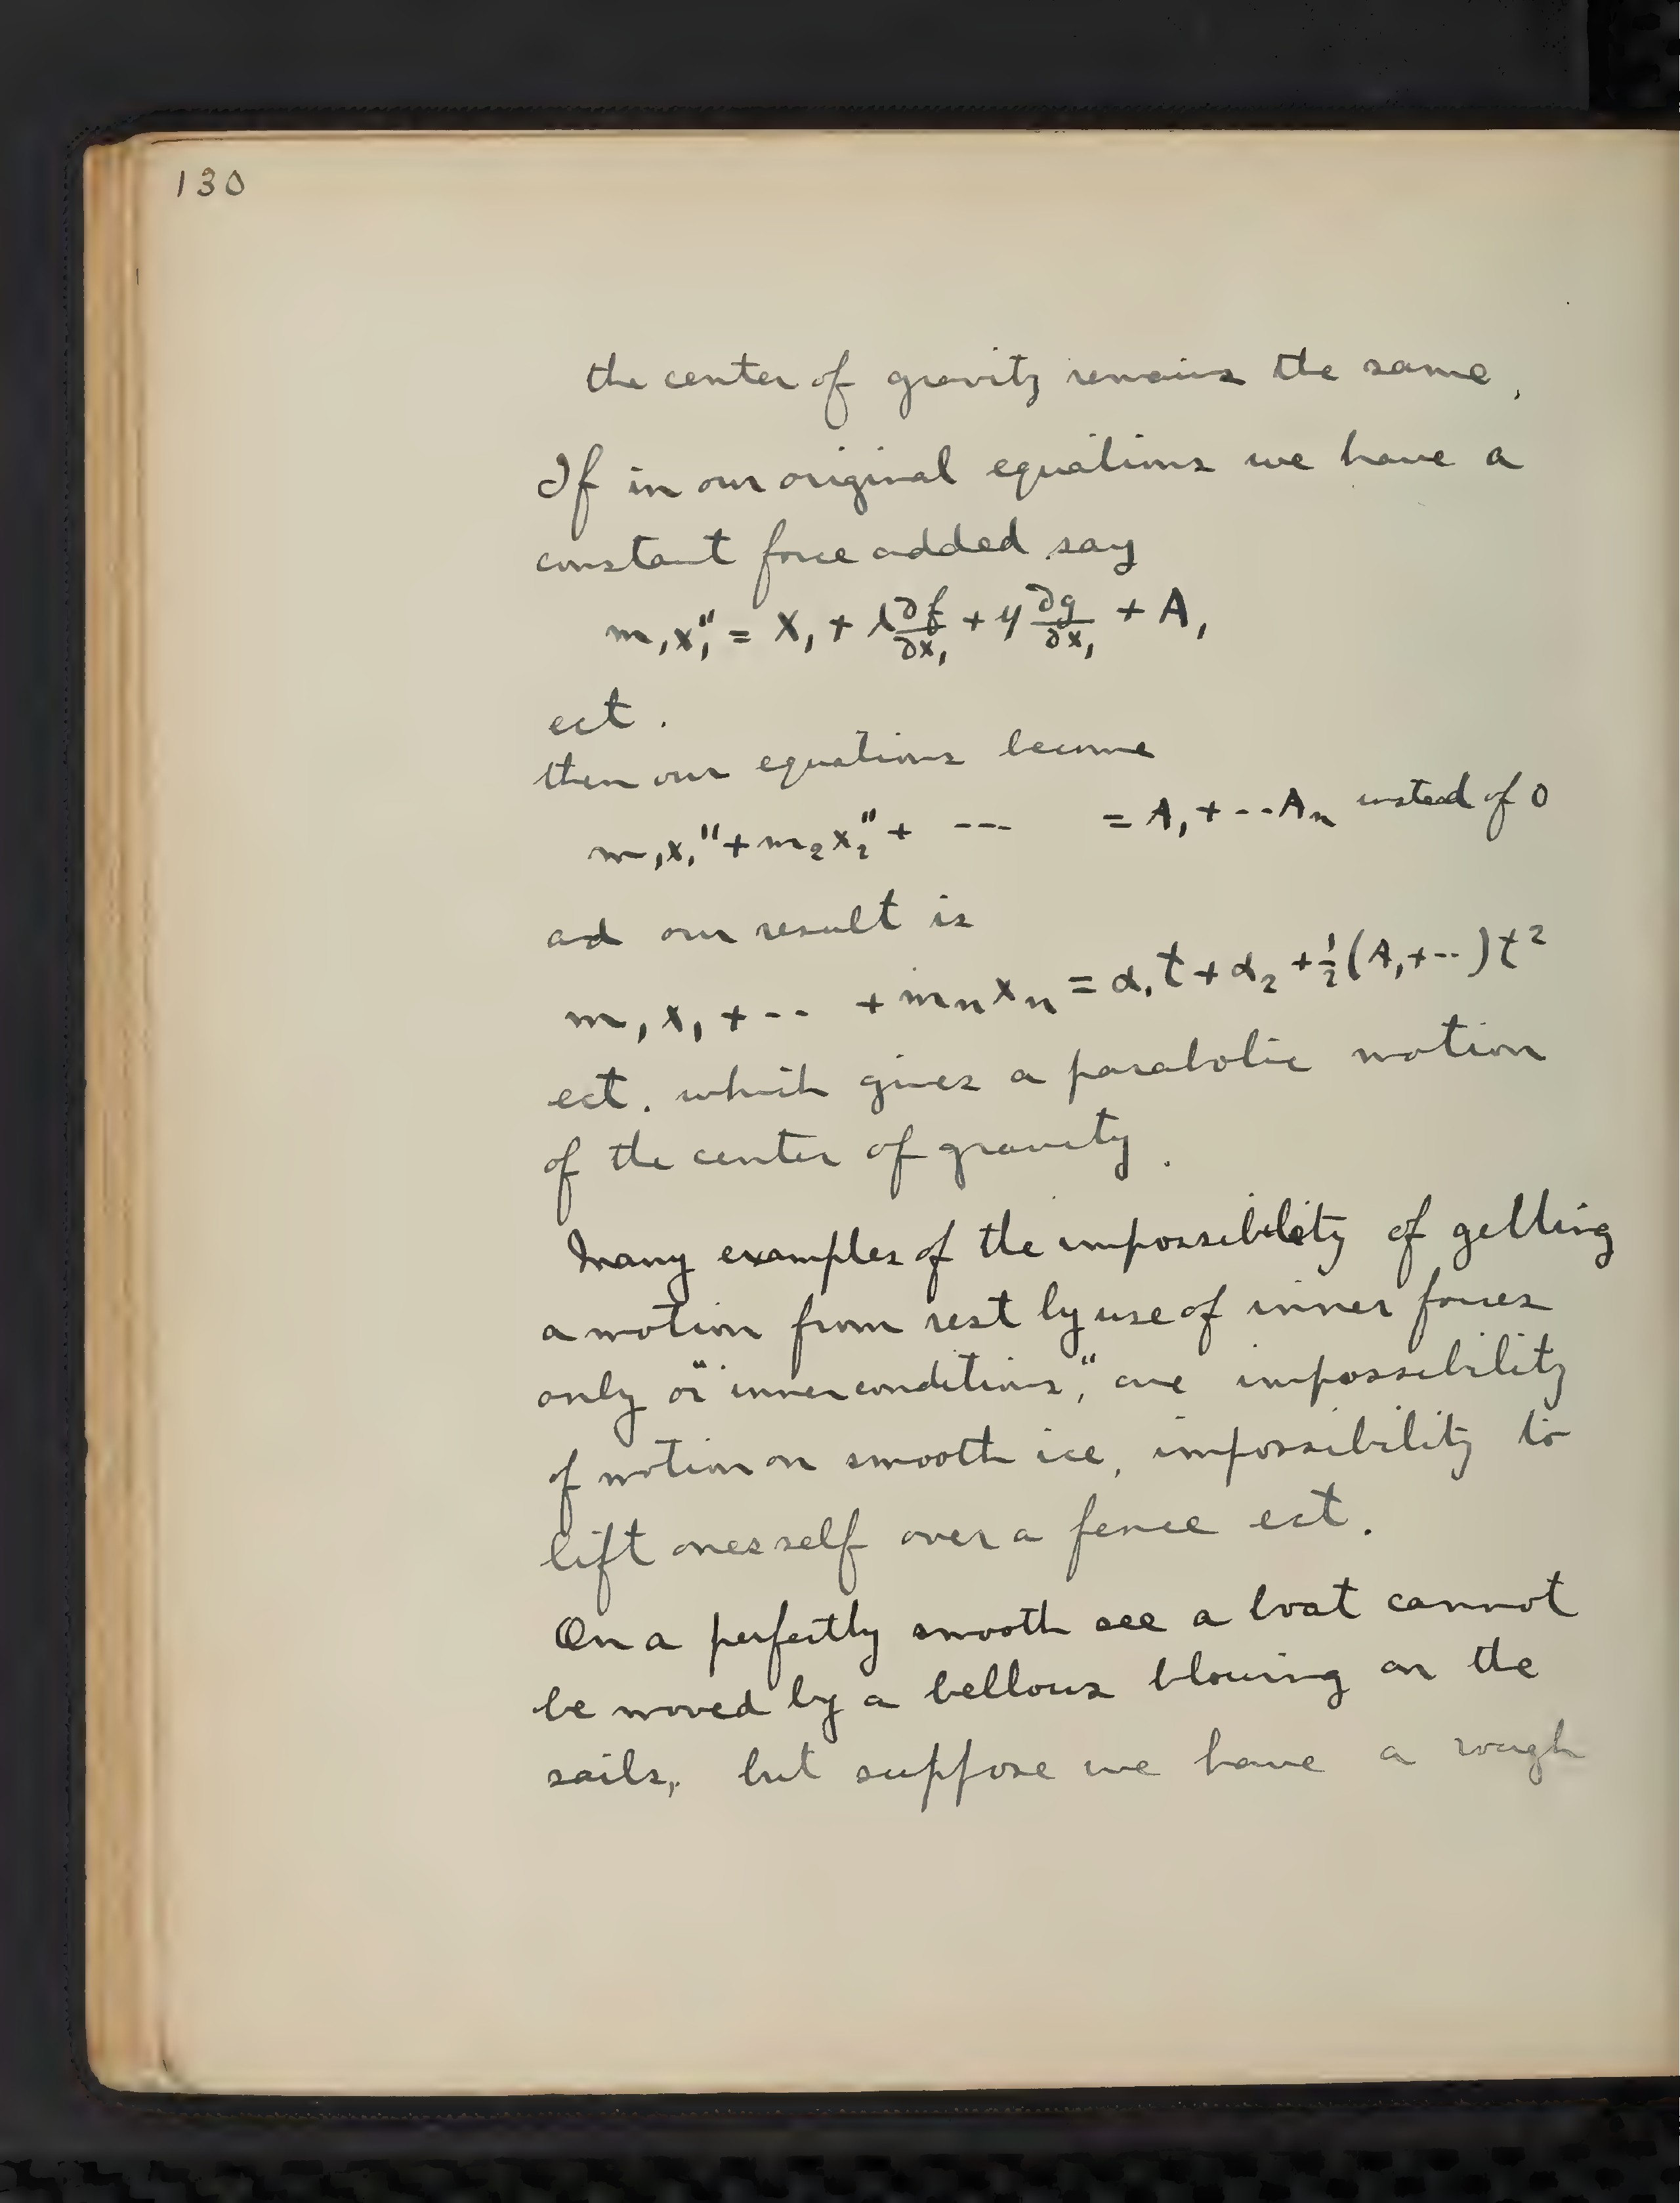 130
the center of gravity remains the same,
If in our original equations we have a
constant force added say
m₁x₁" = X₁ + λ ∂f/∂x₁ + μ ∂g/∂x₁ + A₁
ect.
then our equations become
m₁x₁" + m₂x₂" + --- = A₁ + -- Aₙ instead of 0
ad our result is
m₁x₁ + -- + mₙxₙ = α₁t + α₂ + ½(A₁ + --)t²
ect. which gives a parabolic motion
of the center of gravity.
Many examples of the impossibility of getting
a motion from rest by use of inner forces
only or "inner conditions," are impossibility
of motion on smooth ice, impossibility to
lift onesself over a fence ect.
On a perfectly smooth see a boat cannot
be moved by a bellows blowing on the
sails, but suppose we have a rough